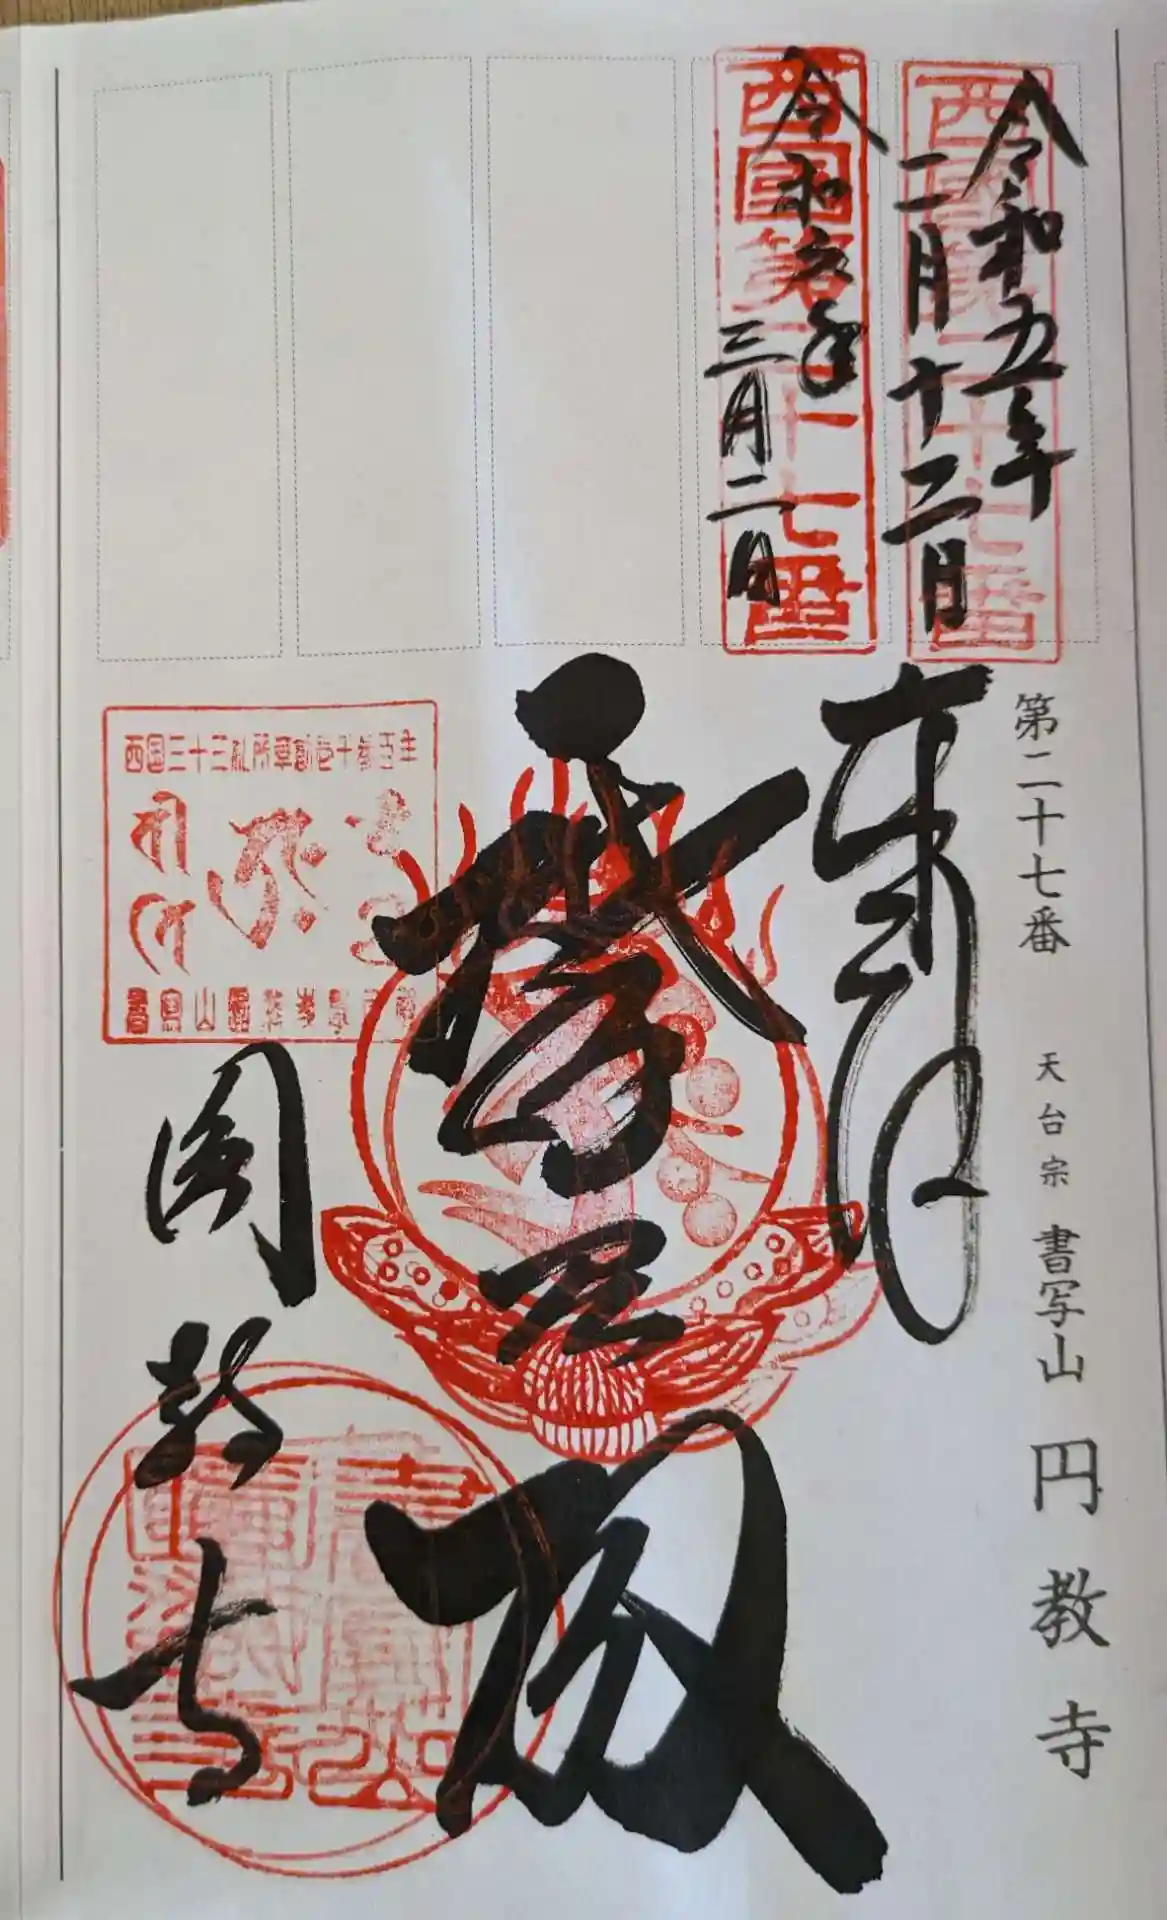 第二十七番 天台宗 書写山 円教寺
令和五年
二月十二日
西國第二十七番
令和六年
三月二日
西國第二十七番
奉拝
摩尼殿
西国三十三札所草創壱千参百年
圓教寺